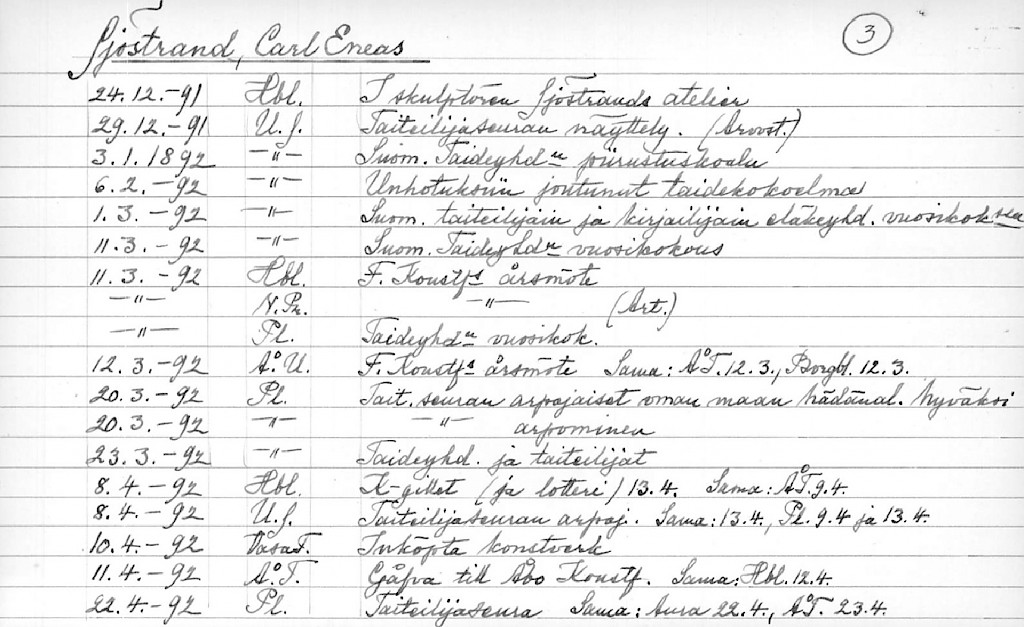 Sjöstrand, Carl Eneas 3
24.12.-91 Hbl. I skulptören Sjöstrands atelier
29.12.-91 U.S. Taiteilijaseuran näyttely. (Arvost.)
3.1.1892 -"- Suom. Taideyhd:n piirustuskoulu
6.2.-92 -"- Unhotuksiin joutunut taidekokoelma
1.3.-92 -"- Suom. taiteilijain ja kirjailijain eläkeyhd. vuosikokous
11.3.-92 -"- Suom. Taideyhd:n vuosikokous
11.3.-92 Hbl. F. Konstf:s årsmöte
-"- N.Pr. -"- (Art.)
-"- Pl. Taideyhd:n vuosikok.
12.3.-92 Å.U. F. Konstf:s årsmöte Sama: ÅT. 12.3., Borgbl. 12.3.
20.3.-92 Pl. Tait. seuran arpajaiset oman maan hädänal. hyväksi
20.3.-92 -"- -"- arpominen
23.3.-92 -"- Taideyhd. ja taiteilijat
8.4.-92 Hbl. K-gillet (ja lotteri) 13.4. Sama: ÅT. 9.4.
8.4.-92 U.S. Taiteilijaseuran arpaj. Sama: 13.4., Pl. 9.4 ja 13.4.
10.4.-92 VasaT. Inköpta konstverk
11.4.-92 Å.T. Gåfva till Åbo Konstf. Sama: Hbl. 12.4.
22.4.-92 Pl. Taiteilijaseura Sama: Aura 22.4., ÅT. 23.4.